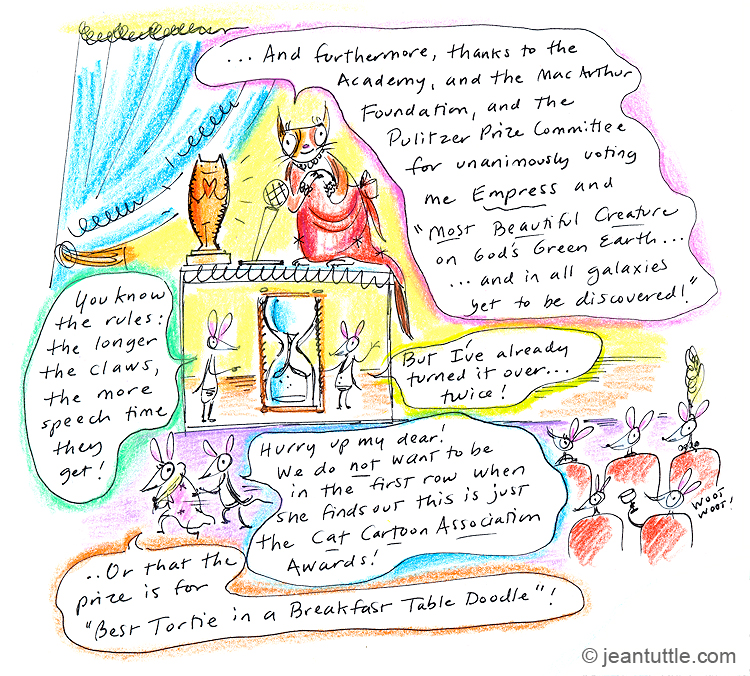 ... And furthermore, thanks to the
Academy, and the MacArthur
Foundation, and the
Pulitzer Prize Committee
for unanimously voting
me Empress and
"Most Beautiful Creature
on God's Green Earth...
... and in all galaxies
yet to be discovered!"
You know
the rules:
the longer
the claws,
the more
speech time
they
get!
But I've already
turned it over...
twice!
Hurry up my dear!
We do not want to be
in the first row when
she finds out this is just
the Cat Cartoon Association
Awards!
WOOT
WOOT!
..Or that the
prize is for
"Best Tortie in a Breakfast Table Doodle"!
© jeantuttle.com